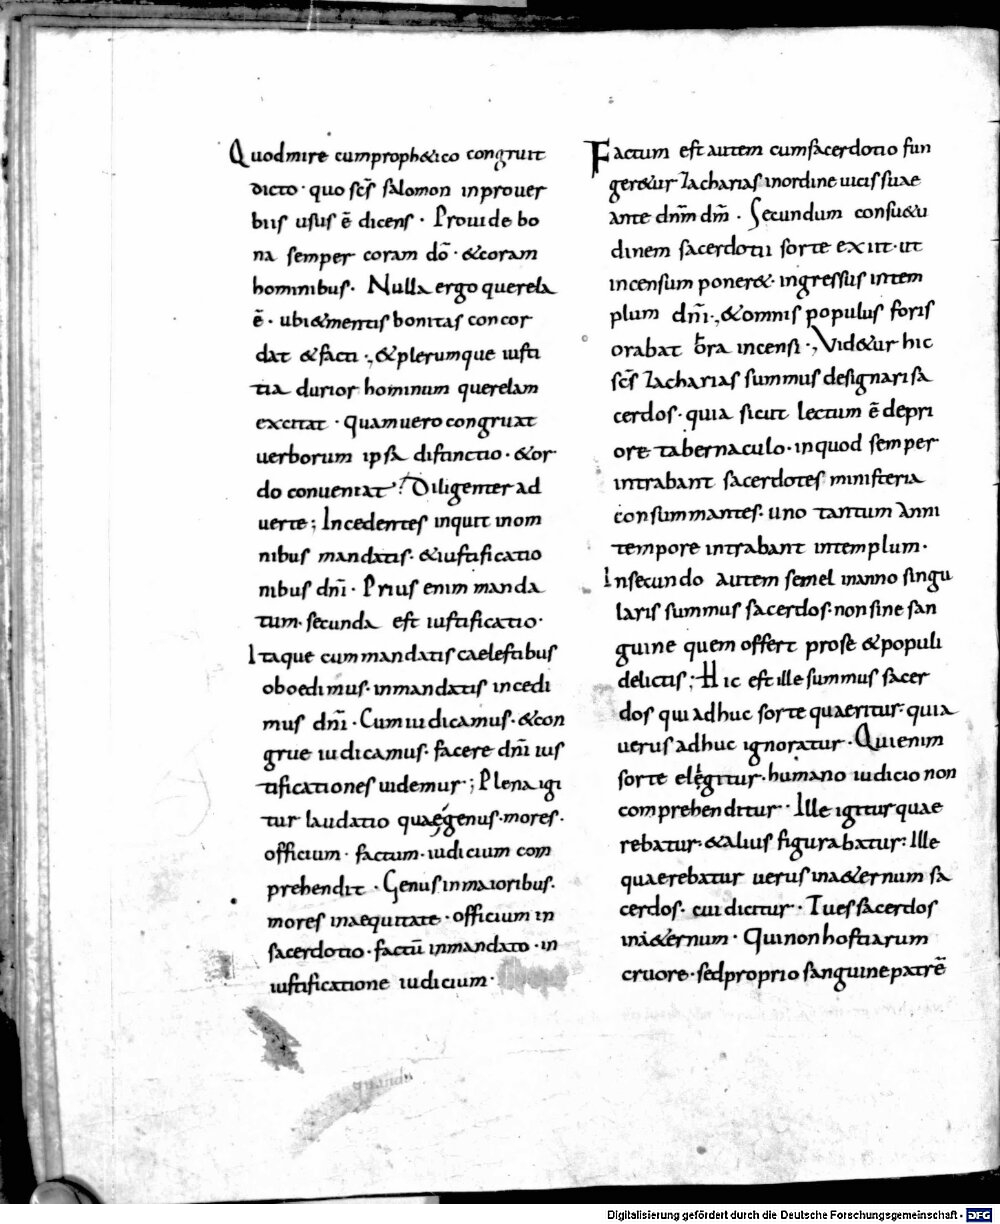 Quodmire cumproph&ico congruit
dicto · quo scs̄ salomon inprouer
biis usus ē dicens · Prouide bo
na semper coram dō · &coram
hominibus · Nulla ergo querela
ē · ubi&mentis bonitas concor
dat &facti ·, &plerumque iusti
tia durior hominum querelam
excitat · Quam uero congruat
uerborum ipsa distinctio · &or
do conueniat? Diligenter ad
uerte; Incedentes inquit inom
nibus mandatis · &iustificatio
nibus dnī · Prius enim manda
tum · secunda est iustificatio ·
Itaque cum mandatis caelestibus
oboedimus · inmandatis incedi
mus dnī · Cum iudicamus · &con
grue iudicamus · facere dnī ius
tificationes uidemur; Plena igi
tur laudatio quae genus · mores ·
officium · factum · iudicium com
prehendit · Genus inmaioribus ·
mores inaequitate · officium in
sacerdotio · factū inmandato · in
iustificatione iudicium ·
Factum est autem cumsacerdotio fun
ger&ur Zacharias inordine uicis suae
ante dnm̄ dm̄ · Secundum consu&u
dinem sacerdotii sorte exiit · ut
incensum poner& · ingressus intem
plum dnī ·, &omnis populus foris
orabat hora incensi ·, Vid&ur hic
scs̄ Zacharias summus designari sa
cerdos · quia sicut lectum ē depri
ore tabernaculo · inquod semper
intrabant sacerdotes ministeria
consummantes · uno tantum Anni
tempore intrabant intemplum ·
Insecundo autem semel inanno singu
laris summus sacerdos · non sine san
guine quem offert prose &populi
delictis; Hic est ille summus sacer
dos qui adhuc sorte quaeritur · quia
uerus adhuc ignoratur · Qui enim
sorte elęgitur · humano iudicio non
comprehenditur · Ille igitur quae
rebatur · &alius figurabatur · Ille
quaerebatur uerus ina&ernum sa
cerdos · cui dicitur · Tu es sacerdos
ina&ernum · Qui non hostiarum
cruore · sed proprio sanguine patrē
Digitalisierung gefördert durch die Deutsche Forschungsgemeinschaft - DFG